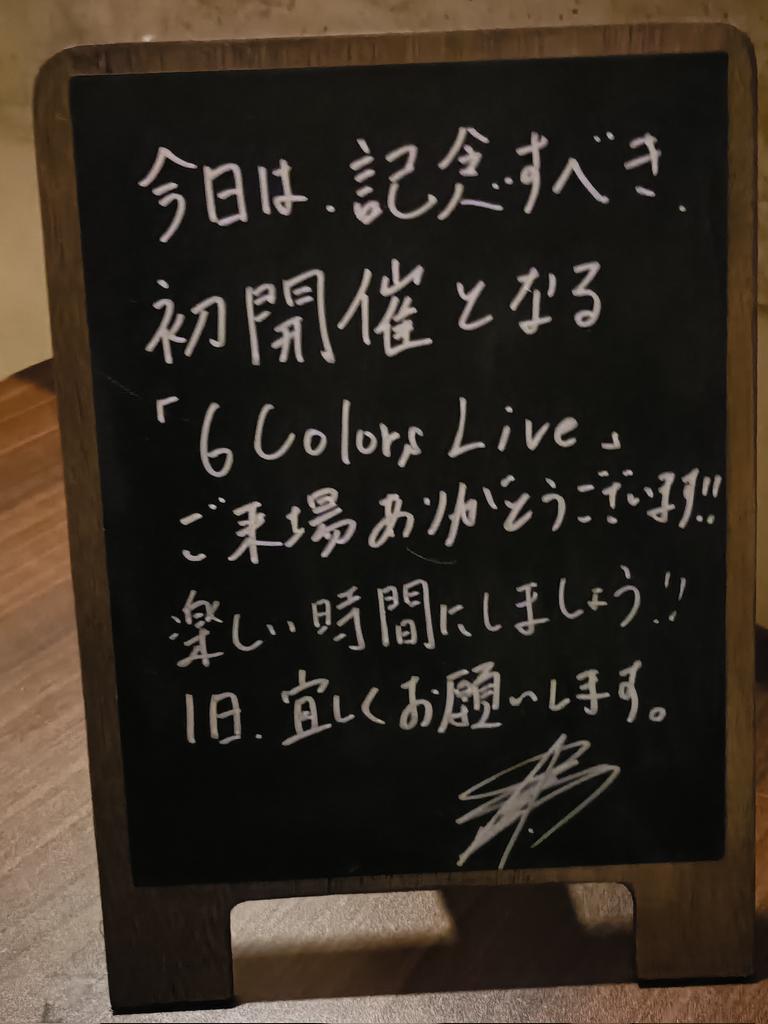 今日は、記念すべき、
初開催となる
「6 Colors Live」
ご来場ありがとうございます!!
楽しい時間にしましょう!!
1日、宜しくお願いします。